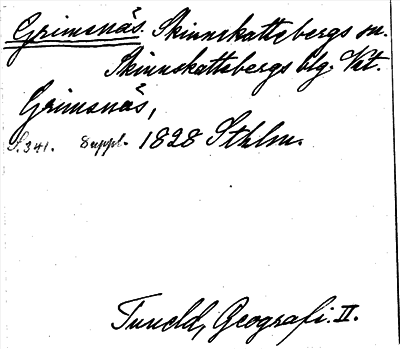 Grimsnäs. Skinnskattebergs sn.
Skinnskattebergs blg. Vst.
Grimsnäs,
S. 341. Suppl. 1828 Sthlm.
Tuneld, Geografi. II.